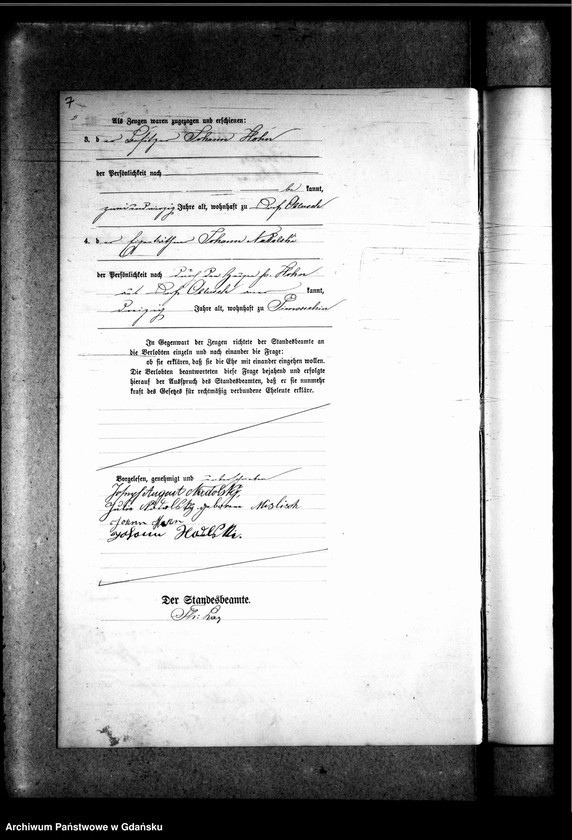 7
Als Zeugen waren zugezogen und erschienen:
3. der Besitzer Johann Hohn
der Persönlichkeit nach
be kannt,
Jahre alt, wohnhaft zu Dorf
4. der Eigenkäthner Johann
der Persönlichkeit nach durch den Zeugen pp. Hohn
aus Dorf kannt,
dreißig Jahre alt, wohnhaft zu
In Gegenwart der Zeugen richtete der Standesbeamte an
die Verlobten einzeln und nach einander die Frage:
ob sie erklären, daß sie die Ehe mit einander eingehen wollen.
Die Verlobten beantworteten diese Frage bejahend und erfolgte
hierauf der Ausspruch des Standesbeamten, daß er sie nunmehr
kraft des Gesetzes für rechtmäßig verbundene Eheleute erkläre.
Vorgelesen, genehmigt und unterschrieben
Josef August
Julie geborene Mislisch
Johann Hohn
Johann
Der Standesbeamte.
Archiwum Państwowe w Gdańsku